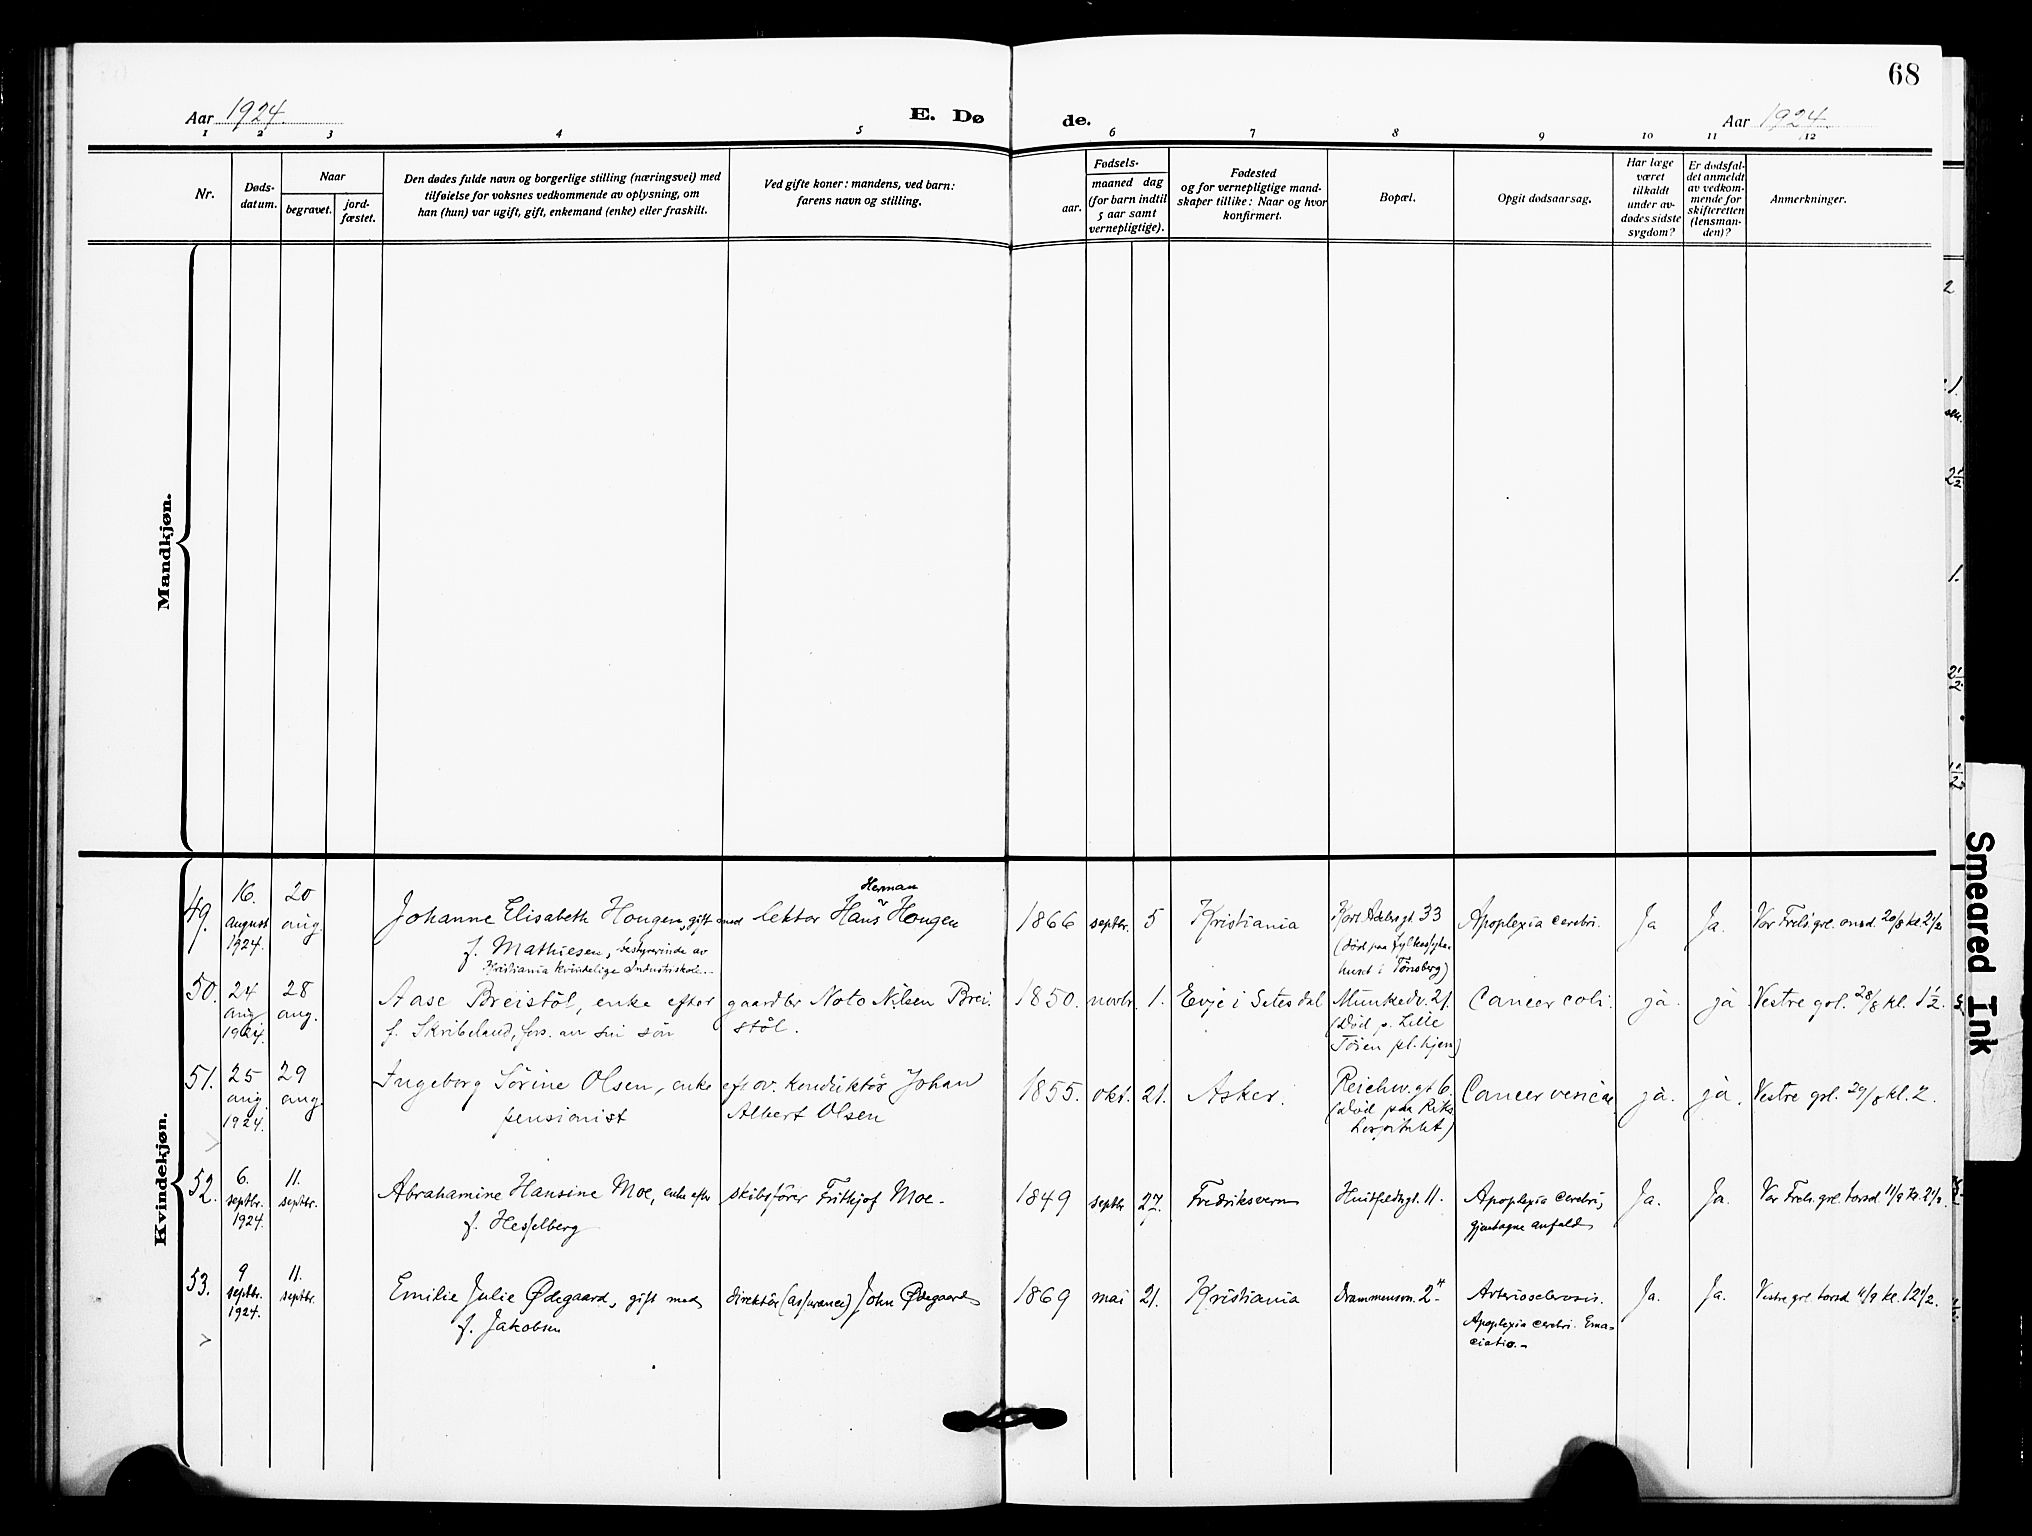 68
Aar 1924.
E. Dø
de.
Aar 1924.
1 2 3 4 5 6 7 8 9 10 11 12
Nr.
Døds-
datum.
Naar
begravet.
jord-
fæstet.
Den dødes fulde navn og borgerlige stilling (næringsvei) med
tilføielse for voksnes vedkommende av oplysning, om
han (hun) var ugift, gift, enkemand (enke) eller fraskilt.
Ved gifte koner: mandens, ved barn:
farens navn og stilling.
Fødsels-
aar.
maaned dag
(for barn indtil
5 aar samt
vernepligtige).
Fødested
og for vernepligtige mand-
skaper tillike: Naar og hvor
konfirmert.
Bopæl.
Opgit dødsaarsag.
Har læge
været
tilkaldt
under av-
dødes sidste
sygdom?
Er dødsfal-
det anmeldt
av vedkom-
mende for
skifteretten
(lensman-
den)?
Anmerkninger.
Mandkjøn.
Kvindekjøn.
49.
16.
august
1924.
20
aug.
Johanne Elisabeth Hougen, gift med
f. Mathiesen, bestyrerinde av
Kristiania kvindelige Industriskole.
Herman
lektor Hans Hougen
1866 septbr. 5
Kristiania
Kort Adelersgt 33
(død paa Fylkessyke-
huset i Tønsberg)
Apoplexia cerebri.
Ja
Ja.
Vor Frels. grl. onsd. 20/8 kl. 2 1/2
50.
24
aug
1924.
28
aug.
Aase Breistöl, enke efter
f. Skribeland, fors. av sin sön
gaardbr Noto Nilsen Brei-
stöl.
1850. novbr. 1.
Evje i Setesdal
Munkedv. 21
(Död p. Lille
Töien pl. hjem)
Cancer coli.
ja.
ja
Vestre grl. 28/8 kl. 1 1/2.
51.
25
aug.
1924.
29
aug.
Ingeborg Sörine Olsen, enke
pensionist
eft ov. konduktör Johan
Albert Olsen
1855. okt. 21.
Asker.
Reichw. gt 6.
(död paa Riks
hospitalet)
Cancer vesicae
ja.
ja.
Vestre grl. 29/8 kl. 2.
52.
6.
septbr.
1924.
11.
septbr.
Abrahamine Hansine Moe, enke efter
f. Hesselberg
skibsfører Frithjof Moe.
1849 septbr 27.
Fredriksvern
Huitfeldtsgt. 11.
Apoplexia cerebri,
gjentagne anfald
Ja.
Ja.
Vor Frels. grl. torsd. 11/9 kl. 2 1/2.
53.
9
septbr.
1924.
11.
septbr.
Emilie Julie Ødegaard, gift med
f. Jakobsen
direktör (assurance) John Ødegaard
1869 mai 21.
Kristiania
Drammensvn. 2
Arteriosclerosis.
Apoplexia cerebri. Ema-
ciatio.
Ja.
Ja.
Vestre grl. torsd. 11/9 kl. 12 1/2.
Smeared Ink